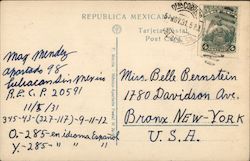 REPUBLICA MEXICANA
Tarjeta Postal
Post Card
May Mendez
Apartado 98
Culiacan Sin Mexico
R.E.C.P. 20591
11/5/31
345-43-(327-117)-9-11-12
O-285-en idioma Español
X-285- " " "
Miss. Belle Bernstein
1780 Davidson Ave.
Bronx New-York
U.S.A.